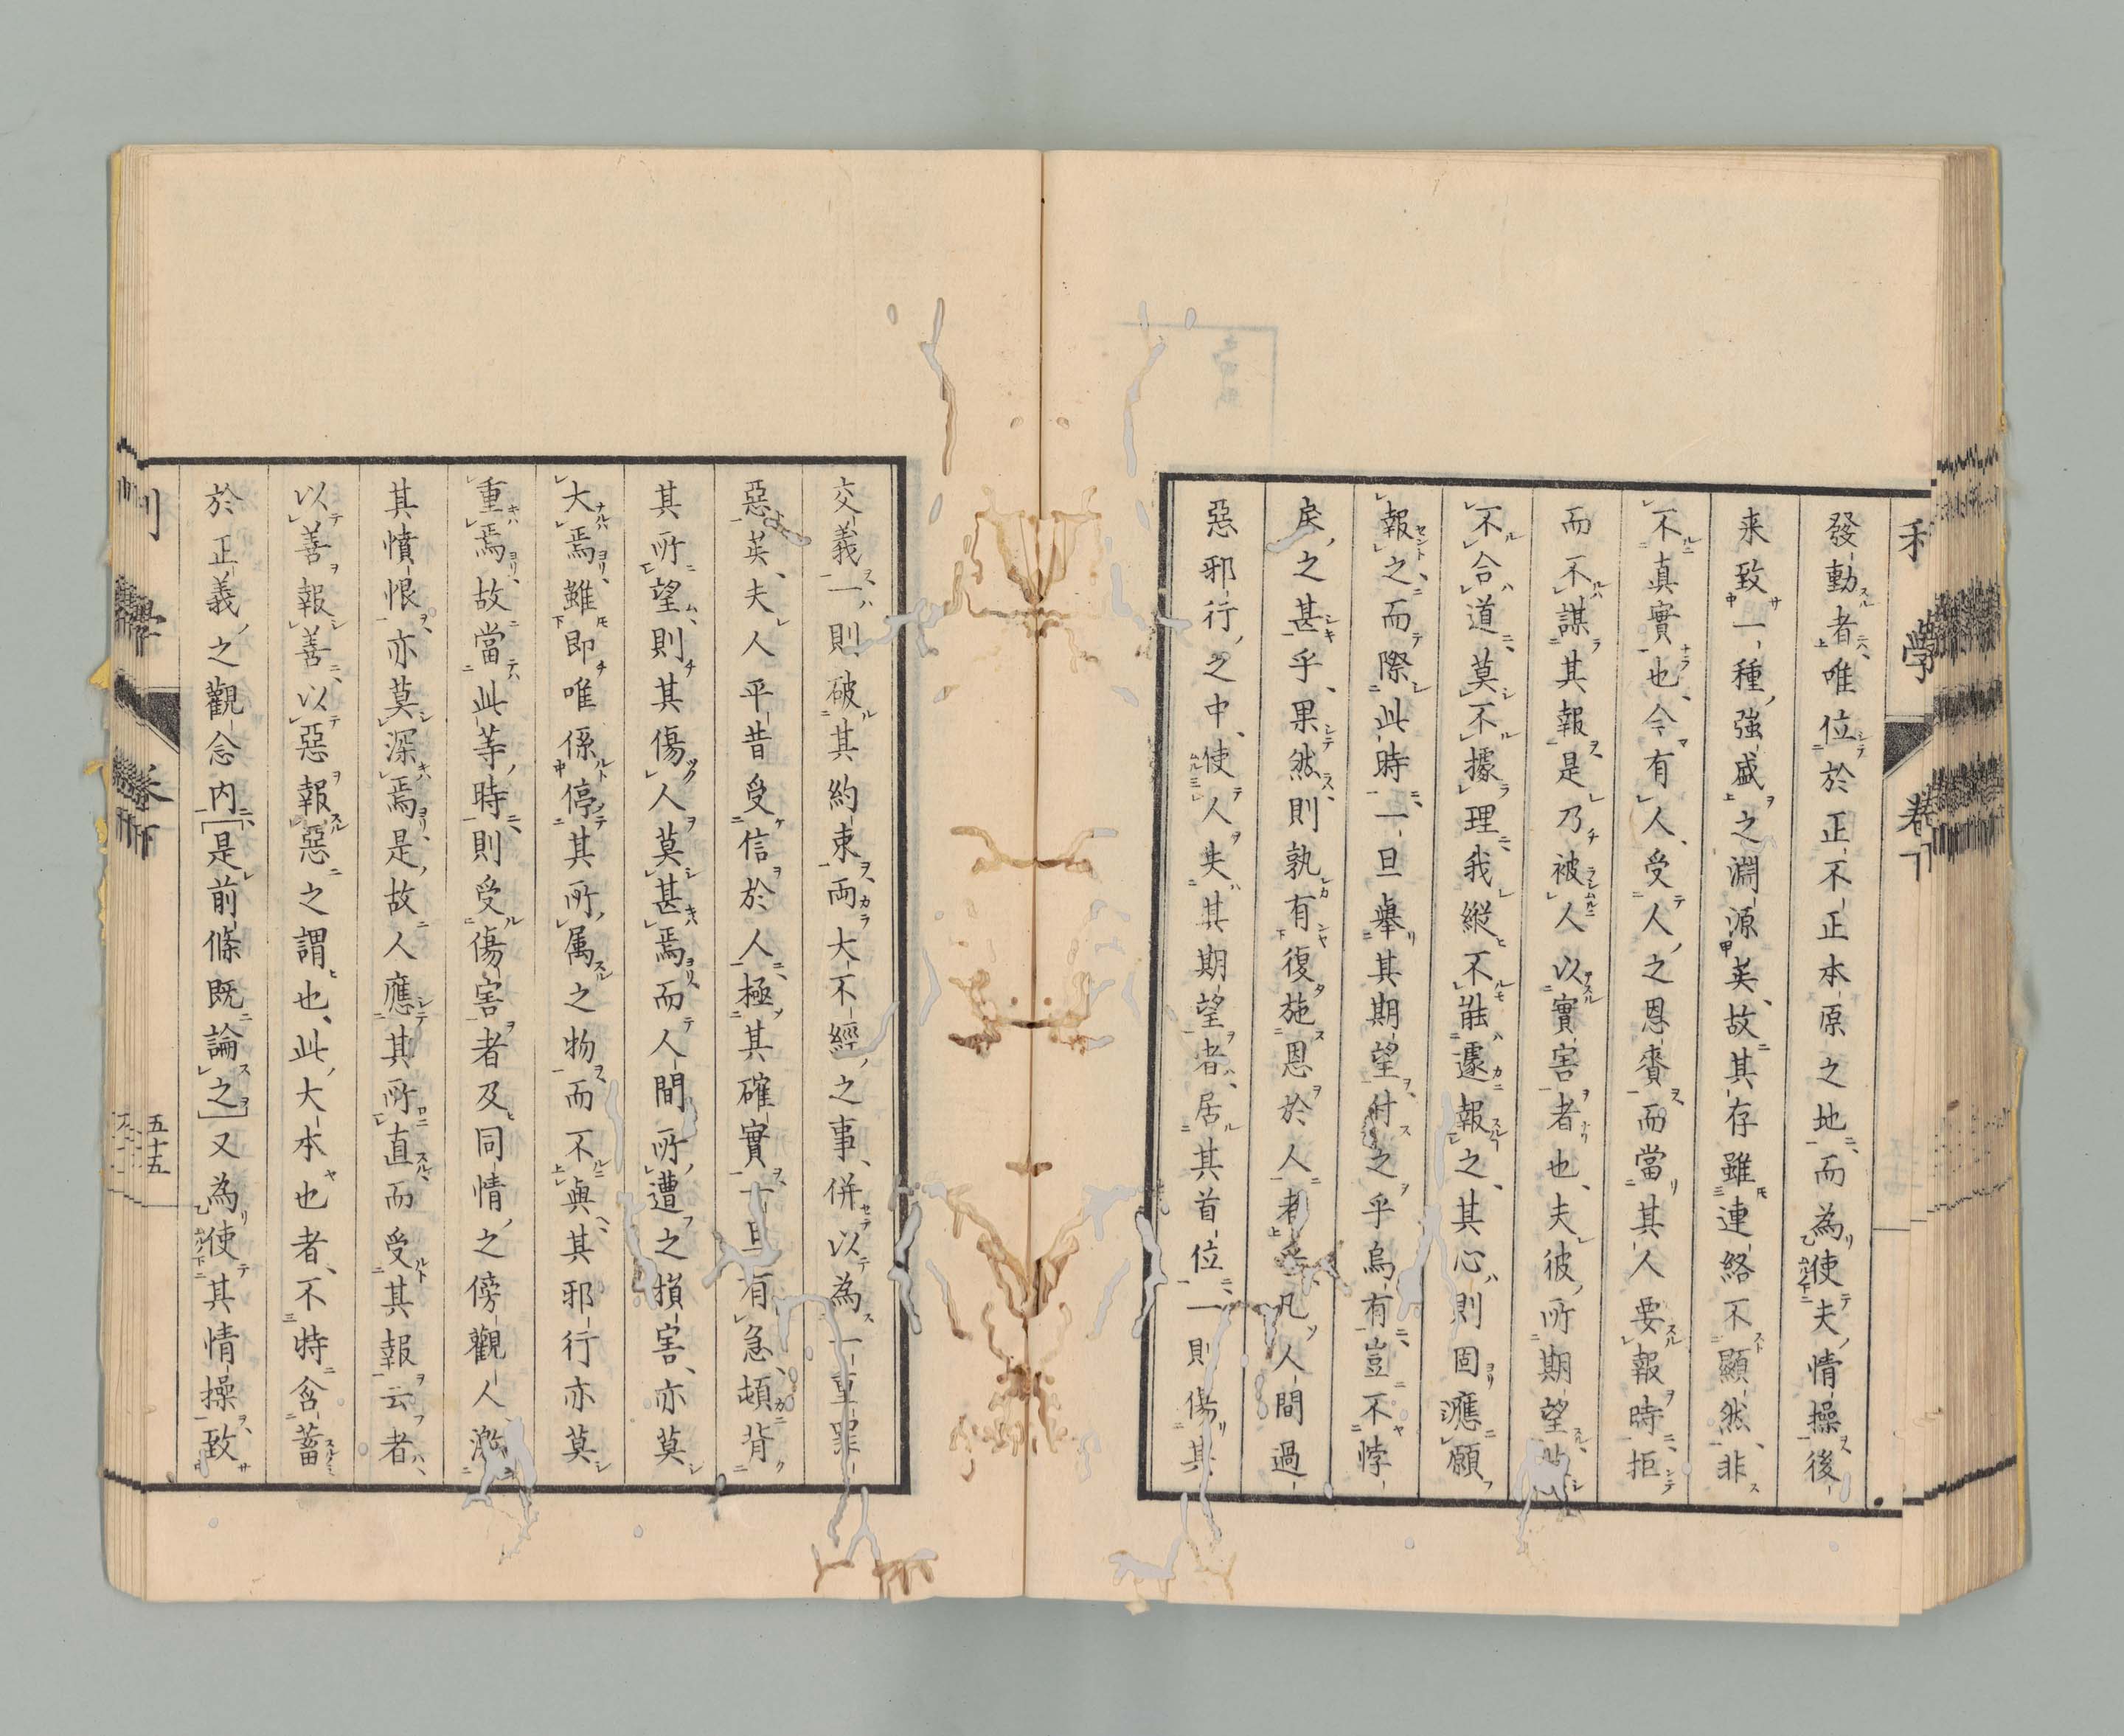 發動者唯位於正不正本原之地而為使夫情操後
来致一種強盛之淵源美故其存雖連絡不顯然非
不真實也今有人受人之恩賚而當其人要報時拒
而不謀其報是乃被人以實害者也夫彼所期望
不合道莫不據理我縱不能遽報之其心則固應願
報之而際此時一旦舉其期望付之乎烏有豈不悖
戾之甚乎果然則孰有復施恩於人者凡人間過
惡邪行之中使人失其期望者居其首位一則傷其
交義一則破其約束兩大不經之事併以為一重罪
惡英夫人平昔受信於人極其確實一旦有急頓背
其所望則其傷人莫甚焉而人間所遭之損害亦莫
大焉雖即唯係停其所属之物而不與其邪行亦莫
重焉故當此等時則受傷害者及同情之傍觀人
其憤恨亦莫深焉是故人應其所直而受其報云者
以善報善以惡報惡之謂也此大本也者不時含蓄
於正義之觀念内[是前條既論之]又為使其情操致
學
卷下
五十五